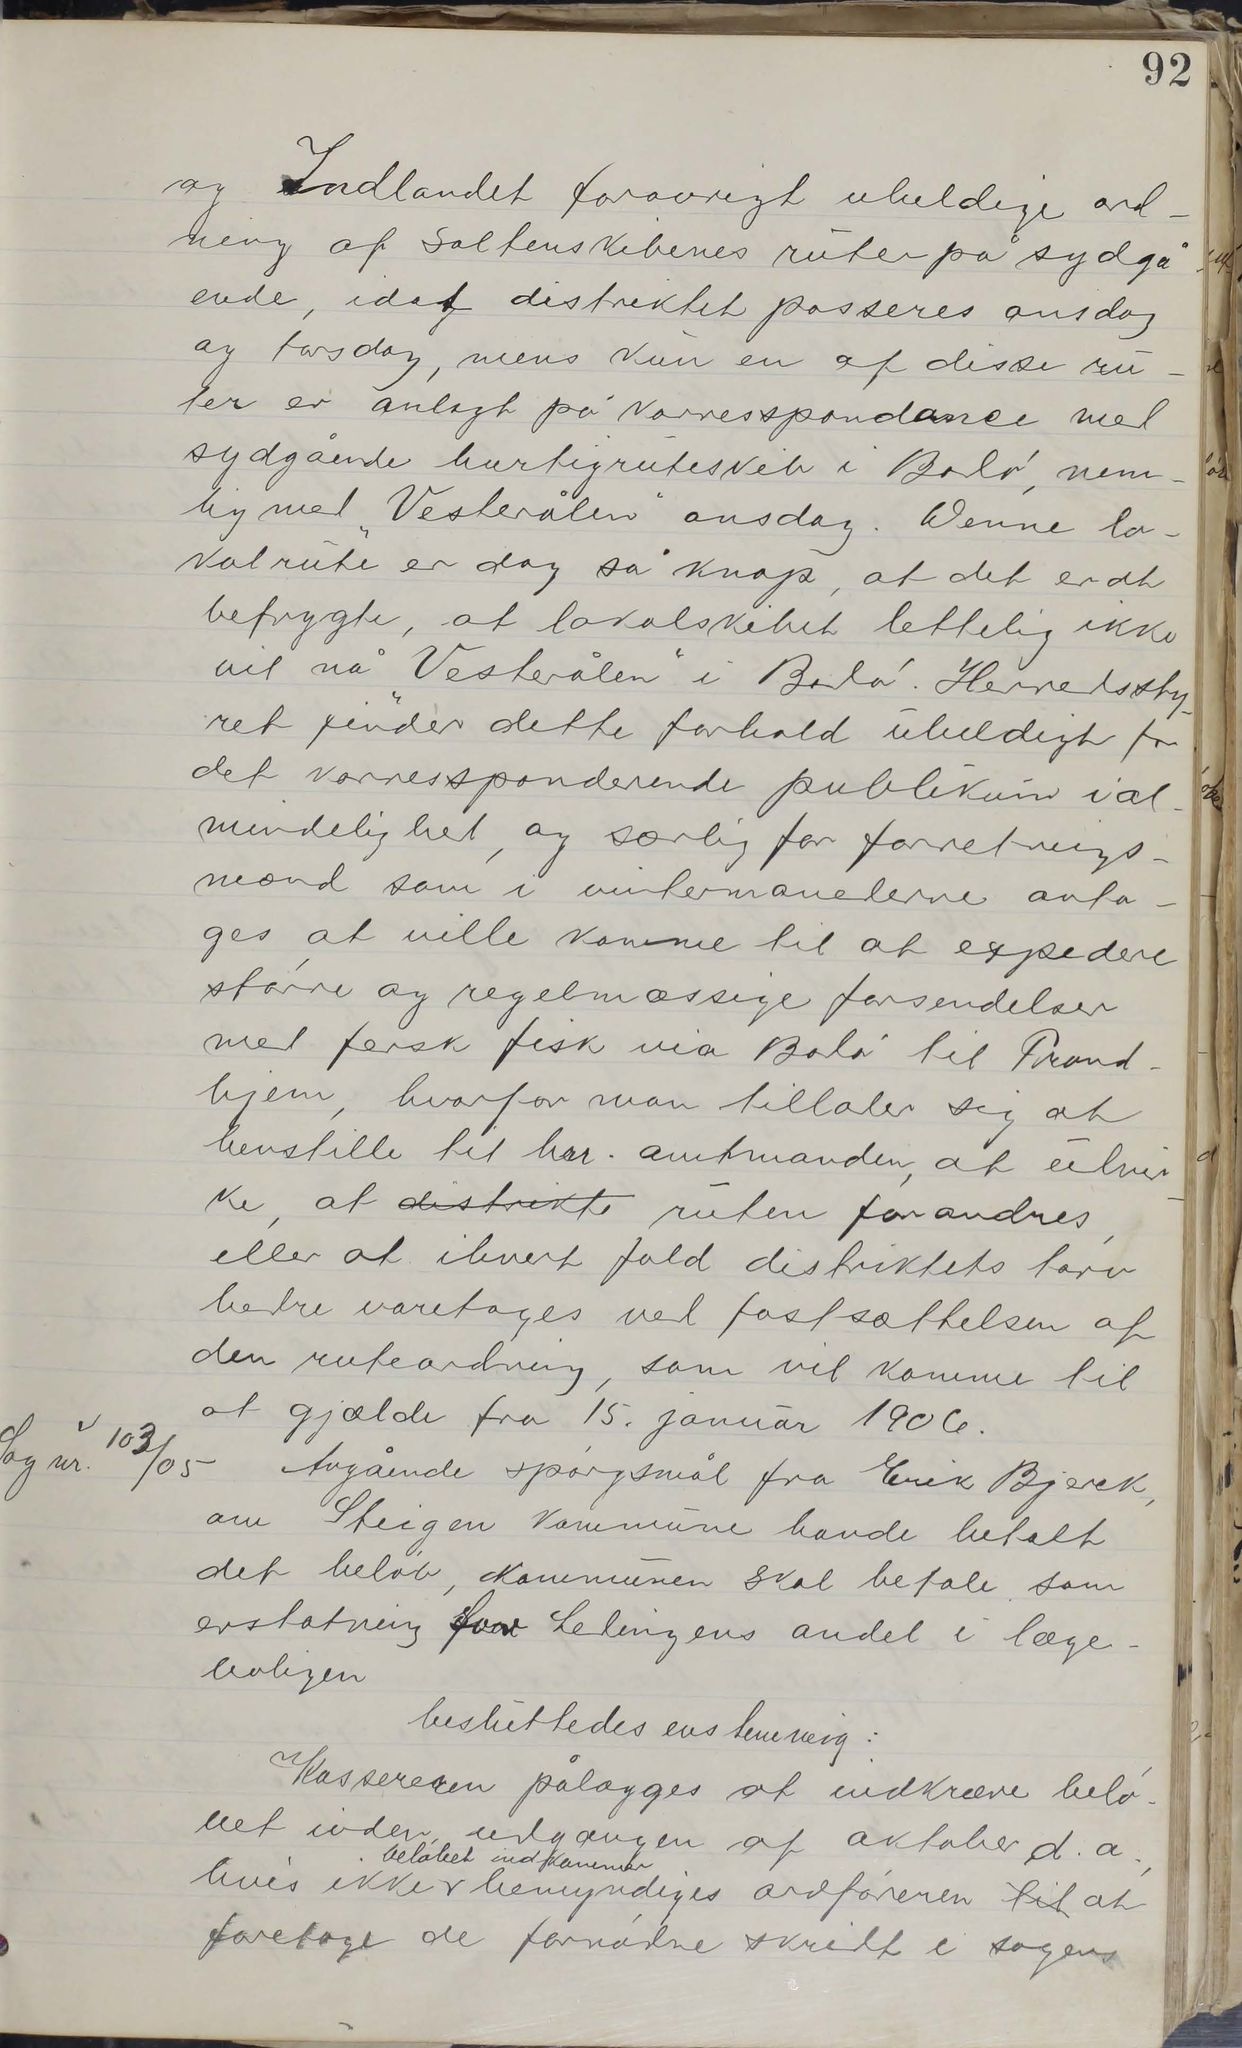 92
og Indlandet forøvrigt uheldige ord-
ning af Saltenskibenes ruter på sydgå-
ende, idet distriktet passeres onsdag
og torsdag, mens kun en af disse ru-
ter er anlagt på korresspondance med
sydgående hurtigruteskib i Bodø, nem-
lig med "Vesterålen" onsdag. Denne lo-
kalrute er dog så knap, at det er at
befrygte, at lokalskibet lettelig ikke
vil nå "Vesterålen" i Bodø. Herredssty-
ret finder dette forhold uheldigt for
det korresponderende publikum i al-
mindelighet, og særlig for forretnings-
mænd som i vintermanederne anta-
ges at ville komme til at expedere
større og regelmæssige forsendelser
med fersk fisk via Bodø til Trond-
hjem, hvorfor man tillater sig at
henstille til hrr. amtmanden, at utvir-
ke, at distrikte ruten forandres,
eller at ihvert fald distriktets tarv
bedre varetages ved fastsættelsen af
den ruteordning, som vil komme til
at gjælde fra 15. januar 1906.
Sag nr. 103/05 Angående spørgsmål fra Erik Bjerck,
om Steigen kommune havde betalt
det beløb, kommunen skal betale som
erstatning for Ledingens andel i læge-
boligen
besluttedes enstemmig:
Kassereren pålægges at indkræve belø-
bet inden udgangen af oktober d.a.,
beløbet indkommer
hvis ikke v bemyndiges ordføreren til at
foretage de fornødne skridt i sagens